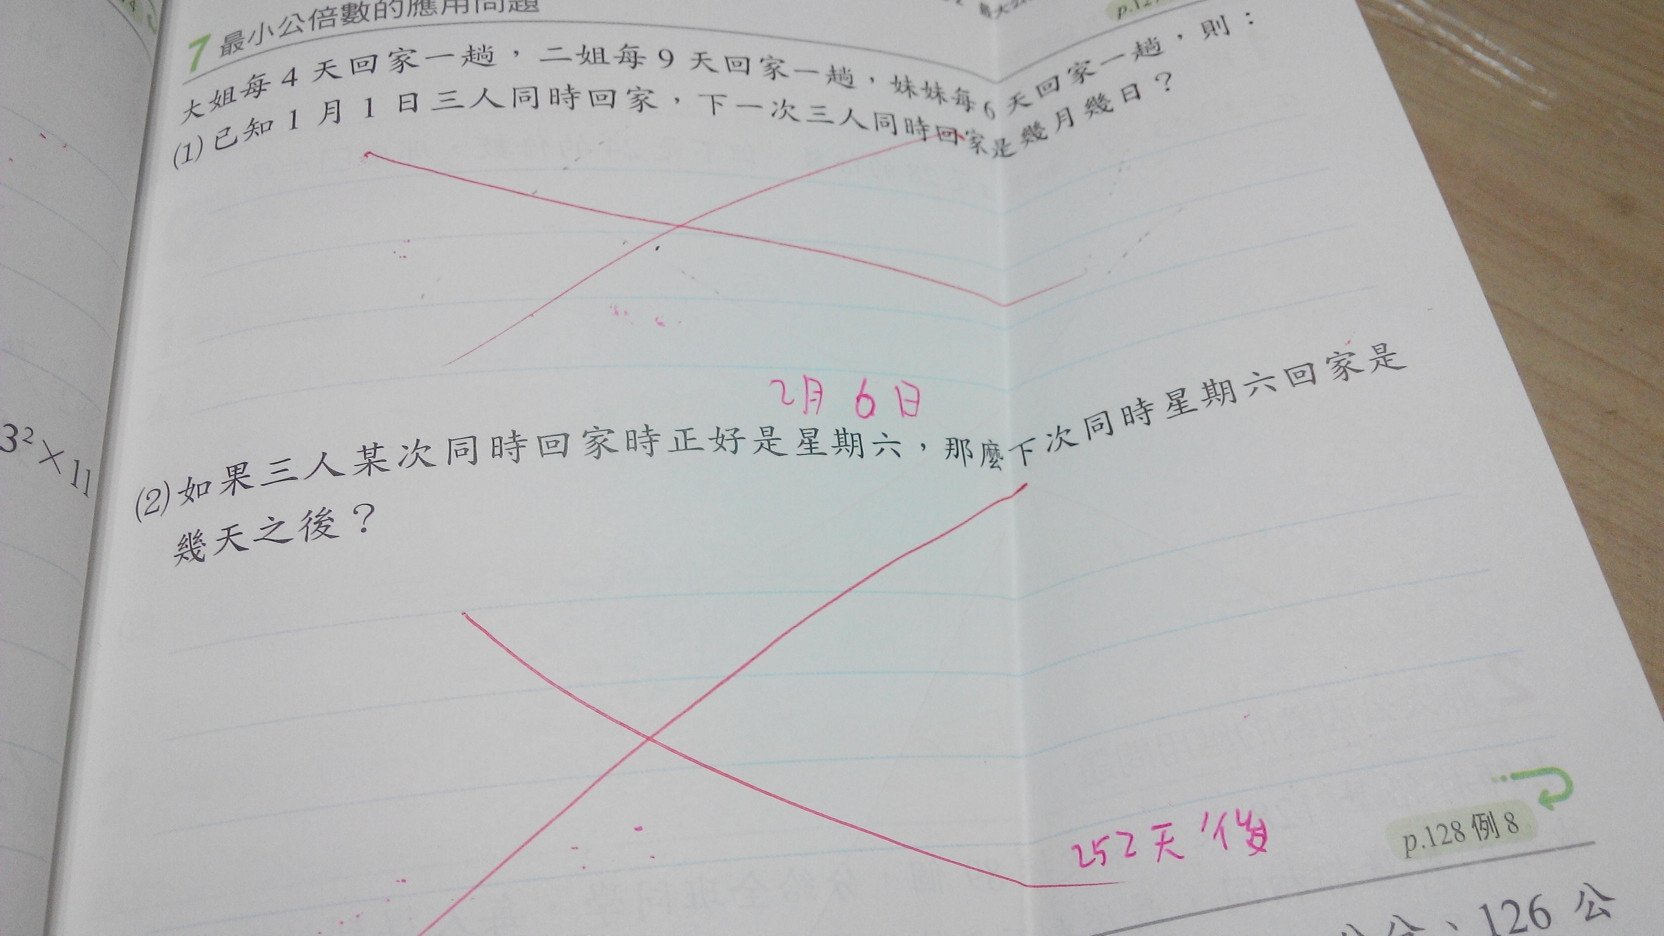 7 最小公倍數的應用問題
大姐每 4 天回家一趟，二姐每 9 天回家一趟，妹妹每 6 天回家一趟，則：
(1)已知 1 月 1 日三人同時回家，下一次三人同時回家是幾月幾日？
2月 6日
(2)如果三人某次同時回家時正好是星期六，那麼下次同時星期六回家是
幾天之後？
3²×11
252天後
p.128 例 8
126 公